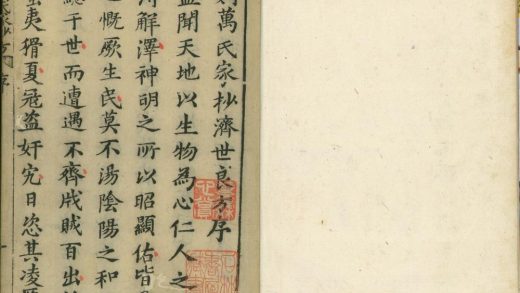 萬氏家抄濟世良方序
盖聞天地以生物為心仁人之
解澤神明之所以昭顯佑皆
慨厥生民莫不湯陰陽之和
于世而遭遇不齊戕賊百出
夷猾夏冦盗奸宄日恣其凌